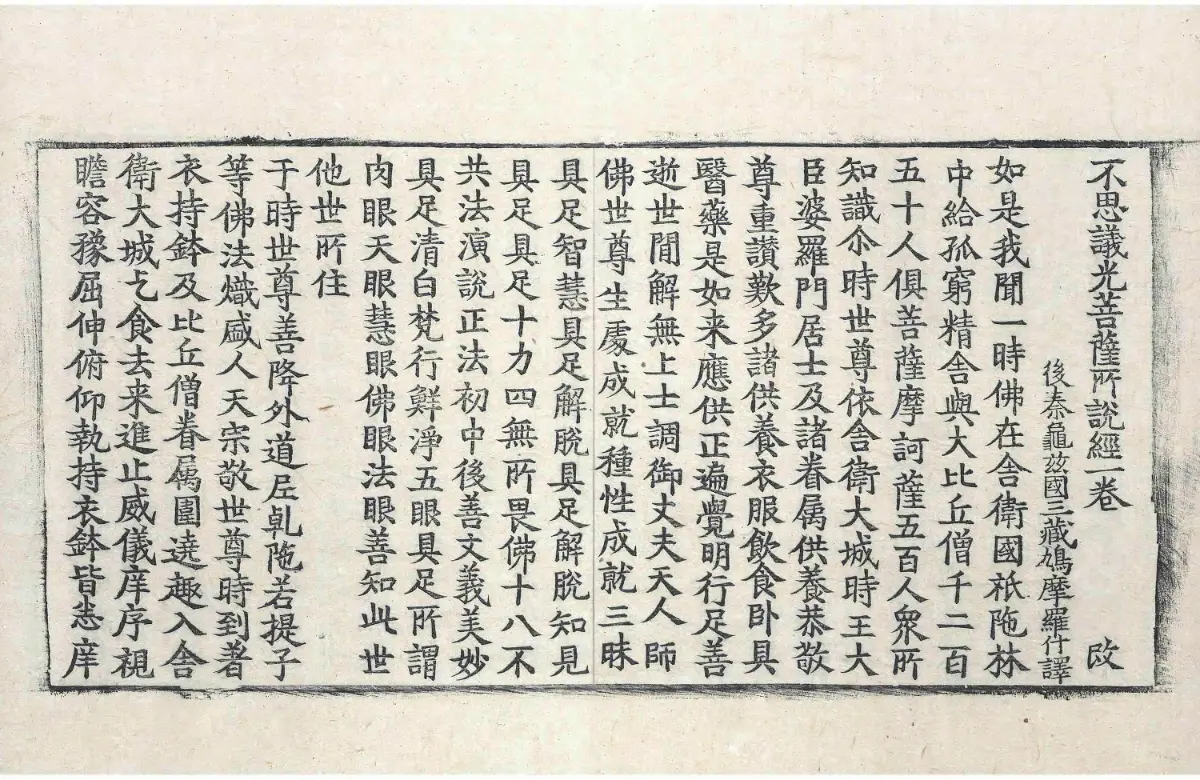 不思議光菩薩所說經一卷 改
後秦龜茲國三藏鳩摩羅什譯
如是我聞一時佛在舍衛國祇陁林
中給孤窮精舍與大比丘僧千二百
五十人俱菩薩摩訶薩五百人衆所
知識尒時世尊依舍衛大城時王大
臣婆羅門居士及諸眷属供養恭敬
尊重讃歎多諸供養衣服飲食卧具
醫藥是如来應供正遍覺明行足善
逝世間解無上士調御丈夫天人師
佛世尊生處成就種性成就三昧
具足智慧具足解脫具足解脫知見
具足具足十力四無所畏佛十八不
共法演說正法初中後善文義美妙
具足清白梵行鮮淨五眼具足所謂
肉眼天眼慧眼佛眼法眼善知此世
他世所住
于時世尊善降外道尼乹陁若提子
等佛法熾盛人天宗敬世尊時到著
衣持鉢及比丘僧眷属圍遶趣入舍
衛大城乞食去来進止威儀庠序視
瞻容豫屈伸俯仰執持衣鉢皆悉庠